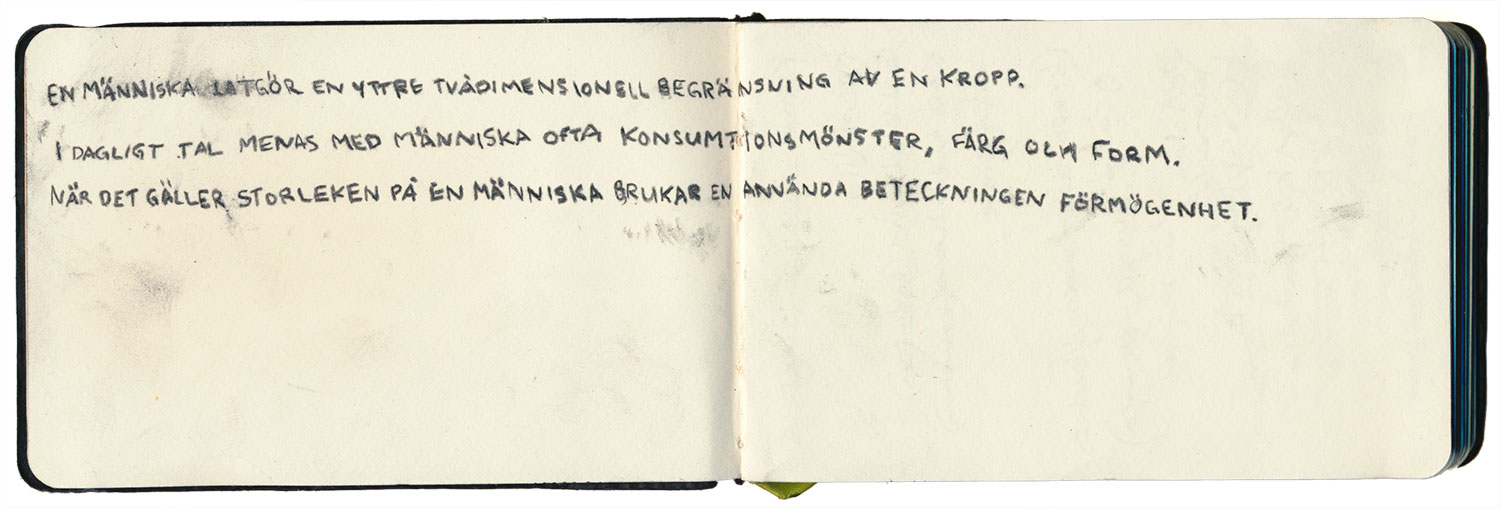 EN MÄNNISKA UTGÖR EN YTTRE TVÅDIMENSIONELL BEGRÄNSNING AV EN KROPP.
I DAGLIGT TAL MENAS MED MÄNNISKA OFTA KONSUMTIONSMÖNSTER, FÄRG OCH FORM.
NÄR DET GÄLLER STORLEKEN PÅ EN MÄNNISKA BRUKAR EN ANVÄNDA BETECKNINGEN FÖRMÖGENHET.